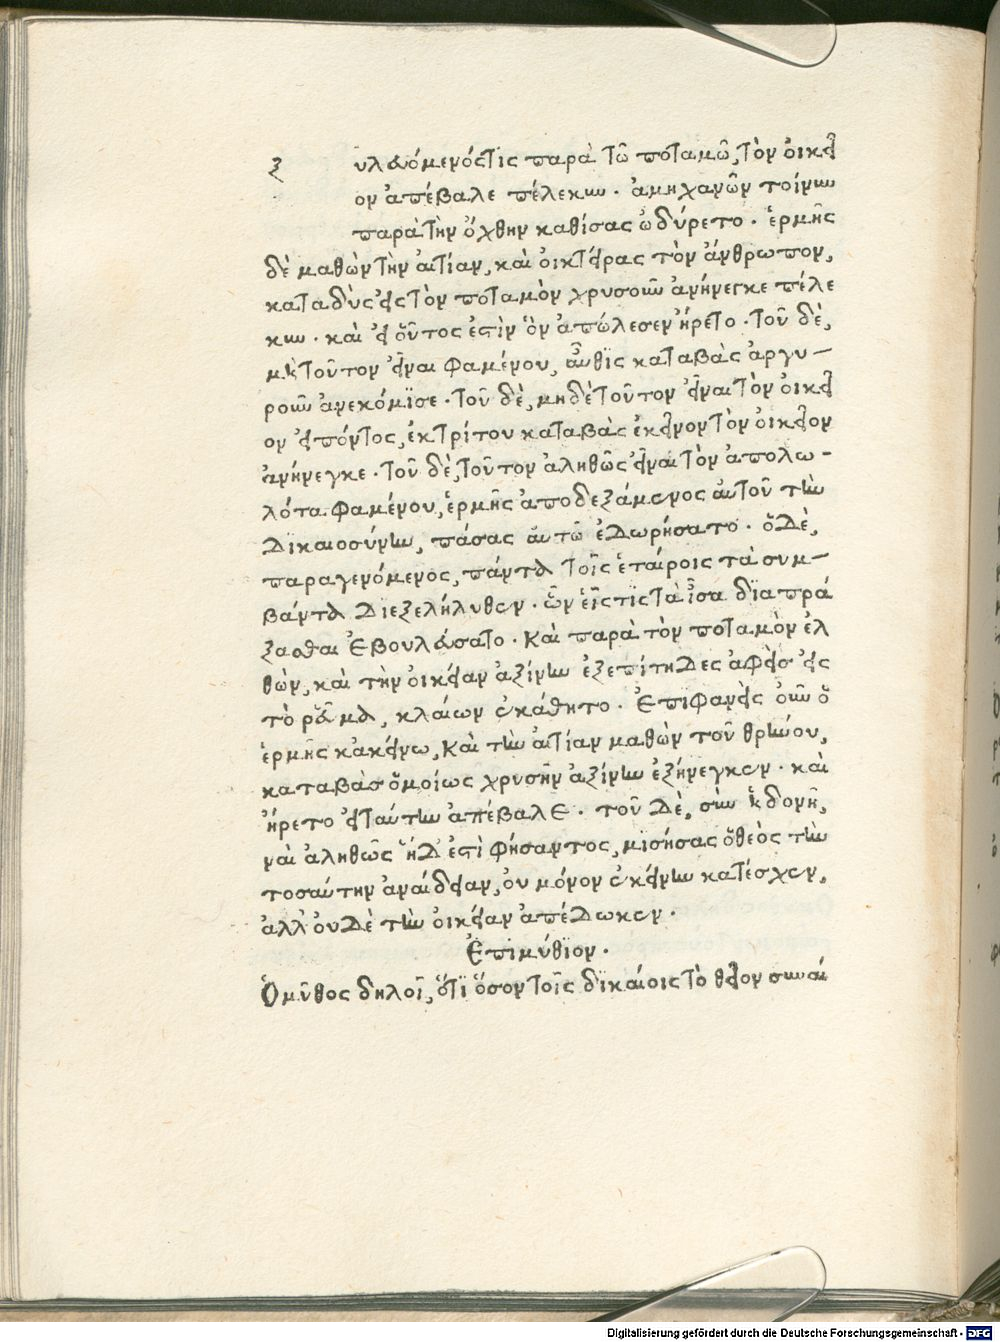 ξ υλευόμενός τις παρὰ τῶ ποταμῶ, τὸν οἰκεῖ
ον ἀπέβαλε πέλεκυν. ἀμηχανῶν τοίνυν
παρὰ τὴν ὄχθην καθίσας ὠδύρετο. ἑρμῆς
δὲ μαθὼν τὴν αἰτίαν, καὶ οἰκτείρας τὸν ἄνθρωπον,
καταδὺς εἰς τὸν ποταμὸν χρυσοῦν ἀνήνεγκε πέλε
κυν. καὶ εἰ οὗτος ἐστὶν ὃν ἀπώλεσεν ἤρετο. τοῦ δὲ,
μὴ τοῦτον εἶναι φαμένου, αὖθις καταβὰς ἀργυ-
ροῦν ἀνεκόμισε. τοῦ δὲ, μηδὲ τοῦτον εἶναι τὸν οἰκεῖ
ον εἰπόντος, ἐκ τρίτου καταβὰς ἐκεῖνον τὸν οἰκεῖον
ἀνήνεγκε. τοῦ δὲ, τοῦτον ἀληθῶς εἶναι τὸν ἀπολω-
λότα φαμένου, ἑρμῆς ἀποδεξάμενος αὐτοῦ τὴν
δικαιοσύνην, πάσας αὐτῶ ἐδωρήσατο. ὁ δὲ,
παραγενόμενος, πάντα τοῖς ἑταίροις τὰ συμ-
βάντα διεξελήλυθεν. ὧν εἷς τὶς τὰ ἶσα διαπρά
ξασθαι ἐβουλεύσατο. καὶ παρὰ τὸν ποταμὸν ἐλ
θὼν, καὶ τὴν οἰκείαν ἀξίνην ἐξεπίτηδες ἀφεὶς εἰς
τὸ ῥεῦμα, κλαίων ἐκάθητο. ἐπιφανεὶς οὖν ὁ
ἑρμῆς κἀκείνω, καὶ τὴν αἰτίαν μαθὼν τοῦ θρήνου,
καταβὰς ὁμοίως χρυσῆν ἀξίνην ἐξήνεγκεν. καὶ
ἤρετο εἰ ταύτην ἀπέβαλε. τοῦ δὲ, σὺν ἡδονῆ,
ναὶ ἀληθῶς ἥδ' ἐστὶ φήσαντος, μισήσας ὁ θεὸς τὴν
τοσαύτην ἀναίδειαν, οὐ μόνον ἐκείνην κατέσχεν,
ἀλλ' οὐδὲ τὴν οἰκείαν ἀπέδωκεν.
Ἐπιμύθιον.
Ὁ μῦθος δηλοῖ, ὅτι ὅσον τοῖς δικαίοις τὸ θεῖον συναί
Digitalisierung gefördert durch die Deutsche Forschungsgemeinschaft - DFG